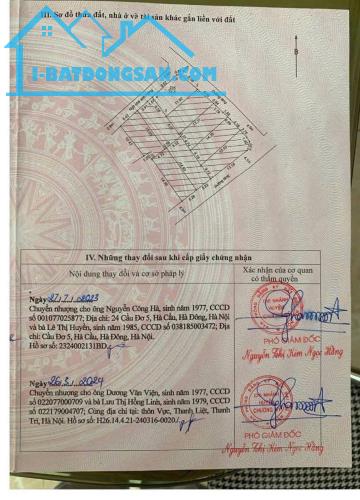 III. Sơ đồ thửa đất, nhà ở và tài sản khác gắn liền với đất
I-BATDONGSAN.COM
B
IV. Những thay đổi sau khi cấp giấy chứng nhận
Nội dung thay đổi và cơ sở pháp lý
Xác nhận của cơ quan
có thẩm quyền
Ngày 27.7.2023
Chuyển nhượng cho ông Nguyễn Công Hà, sinh năm 1977, CCCD
số 001077025877; Địa chỉ: 24 Cầu Đơ 5, Hà Cầu, Hà Đông, Hà Nội
và bà Lê Thị Huyền, sinh năm 1985, CCCD số 038185003472; Địa
chỉ: Cầu Đơ 5, Hà Cầu, Hà Đông, Hà Nội.
Hồ sơ số: 2324002131BD
CHI NHÁNH
PHÓ GIÁM ĐỐC
Nguyễn Thị Kim Ngọc Hằng
Ngày 26.3.2024
Chuyển nhượng cho ông Dương Văn Viện, sinh năm 1977, CCCD
số 022077000709 và bà Lưu Thị Hồng Linh, sinh năm 1979, CCCD số
022179004707; Cùng địa chỉ tại: thôn Vực, Thanh Liệt, Thanh
Trì, Hà Nội; Hồ sơ số: H26.14.4.21-240316-0020
CHI NHÁNH
CHƯƠNG MỸ
PHÓ GIÁM ĐỐC
Nguyễn Thị Kim Ngọc Hằng